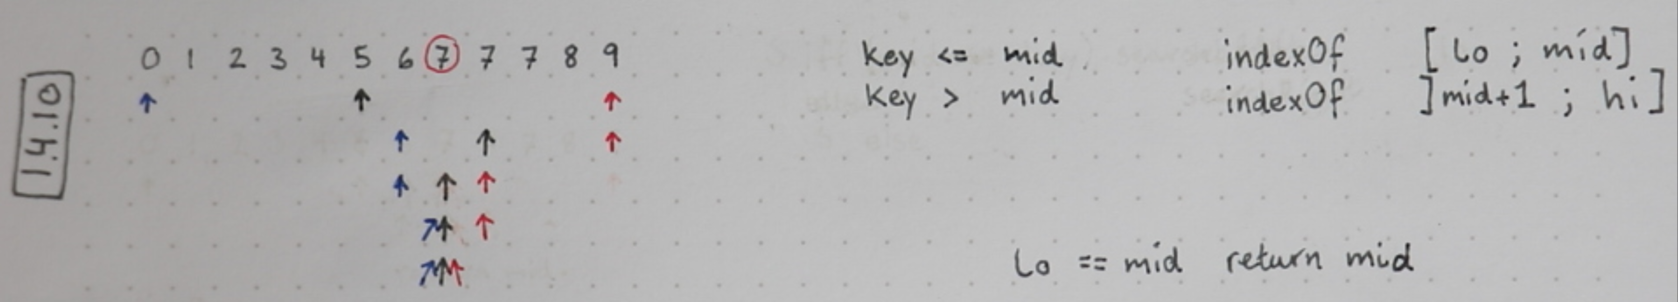 1.4.10
0 1 2 3 4 5 6 7 7 7 8 9
key <= mid indexOf [lo ; mid]
key > mid indexOf ]mid+1 ; hi]
lo == mid return mid